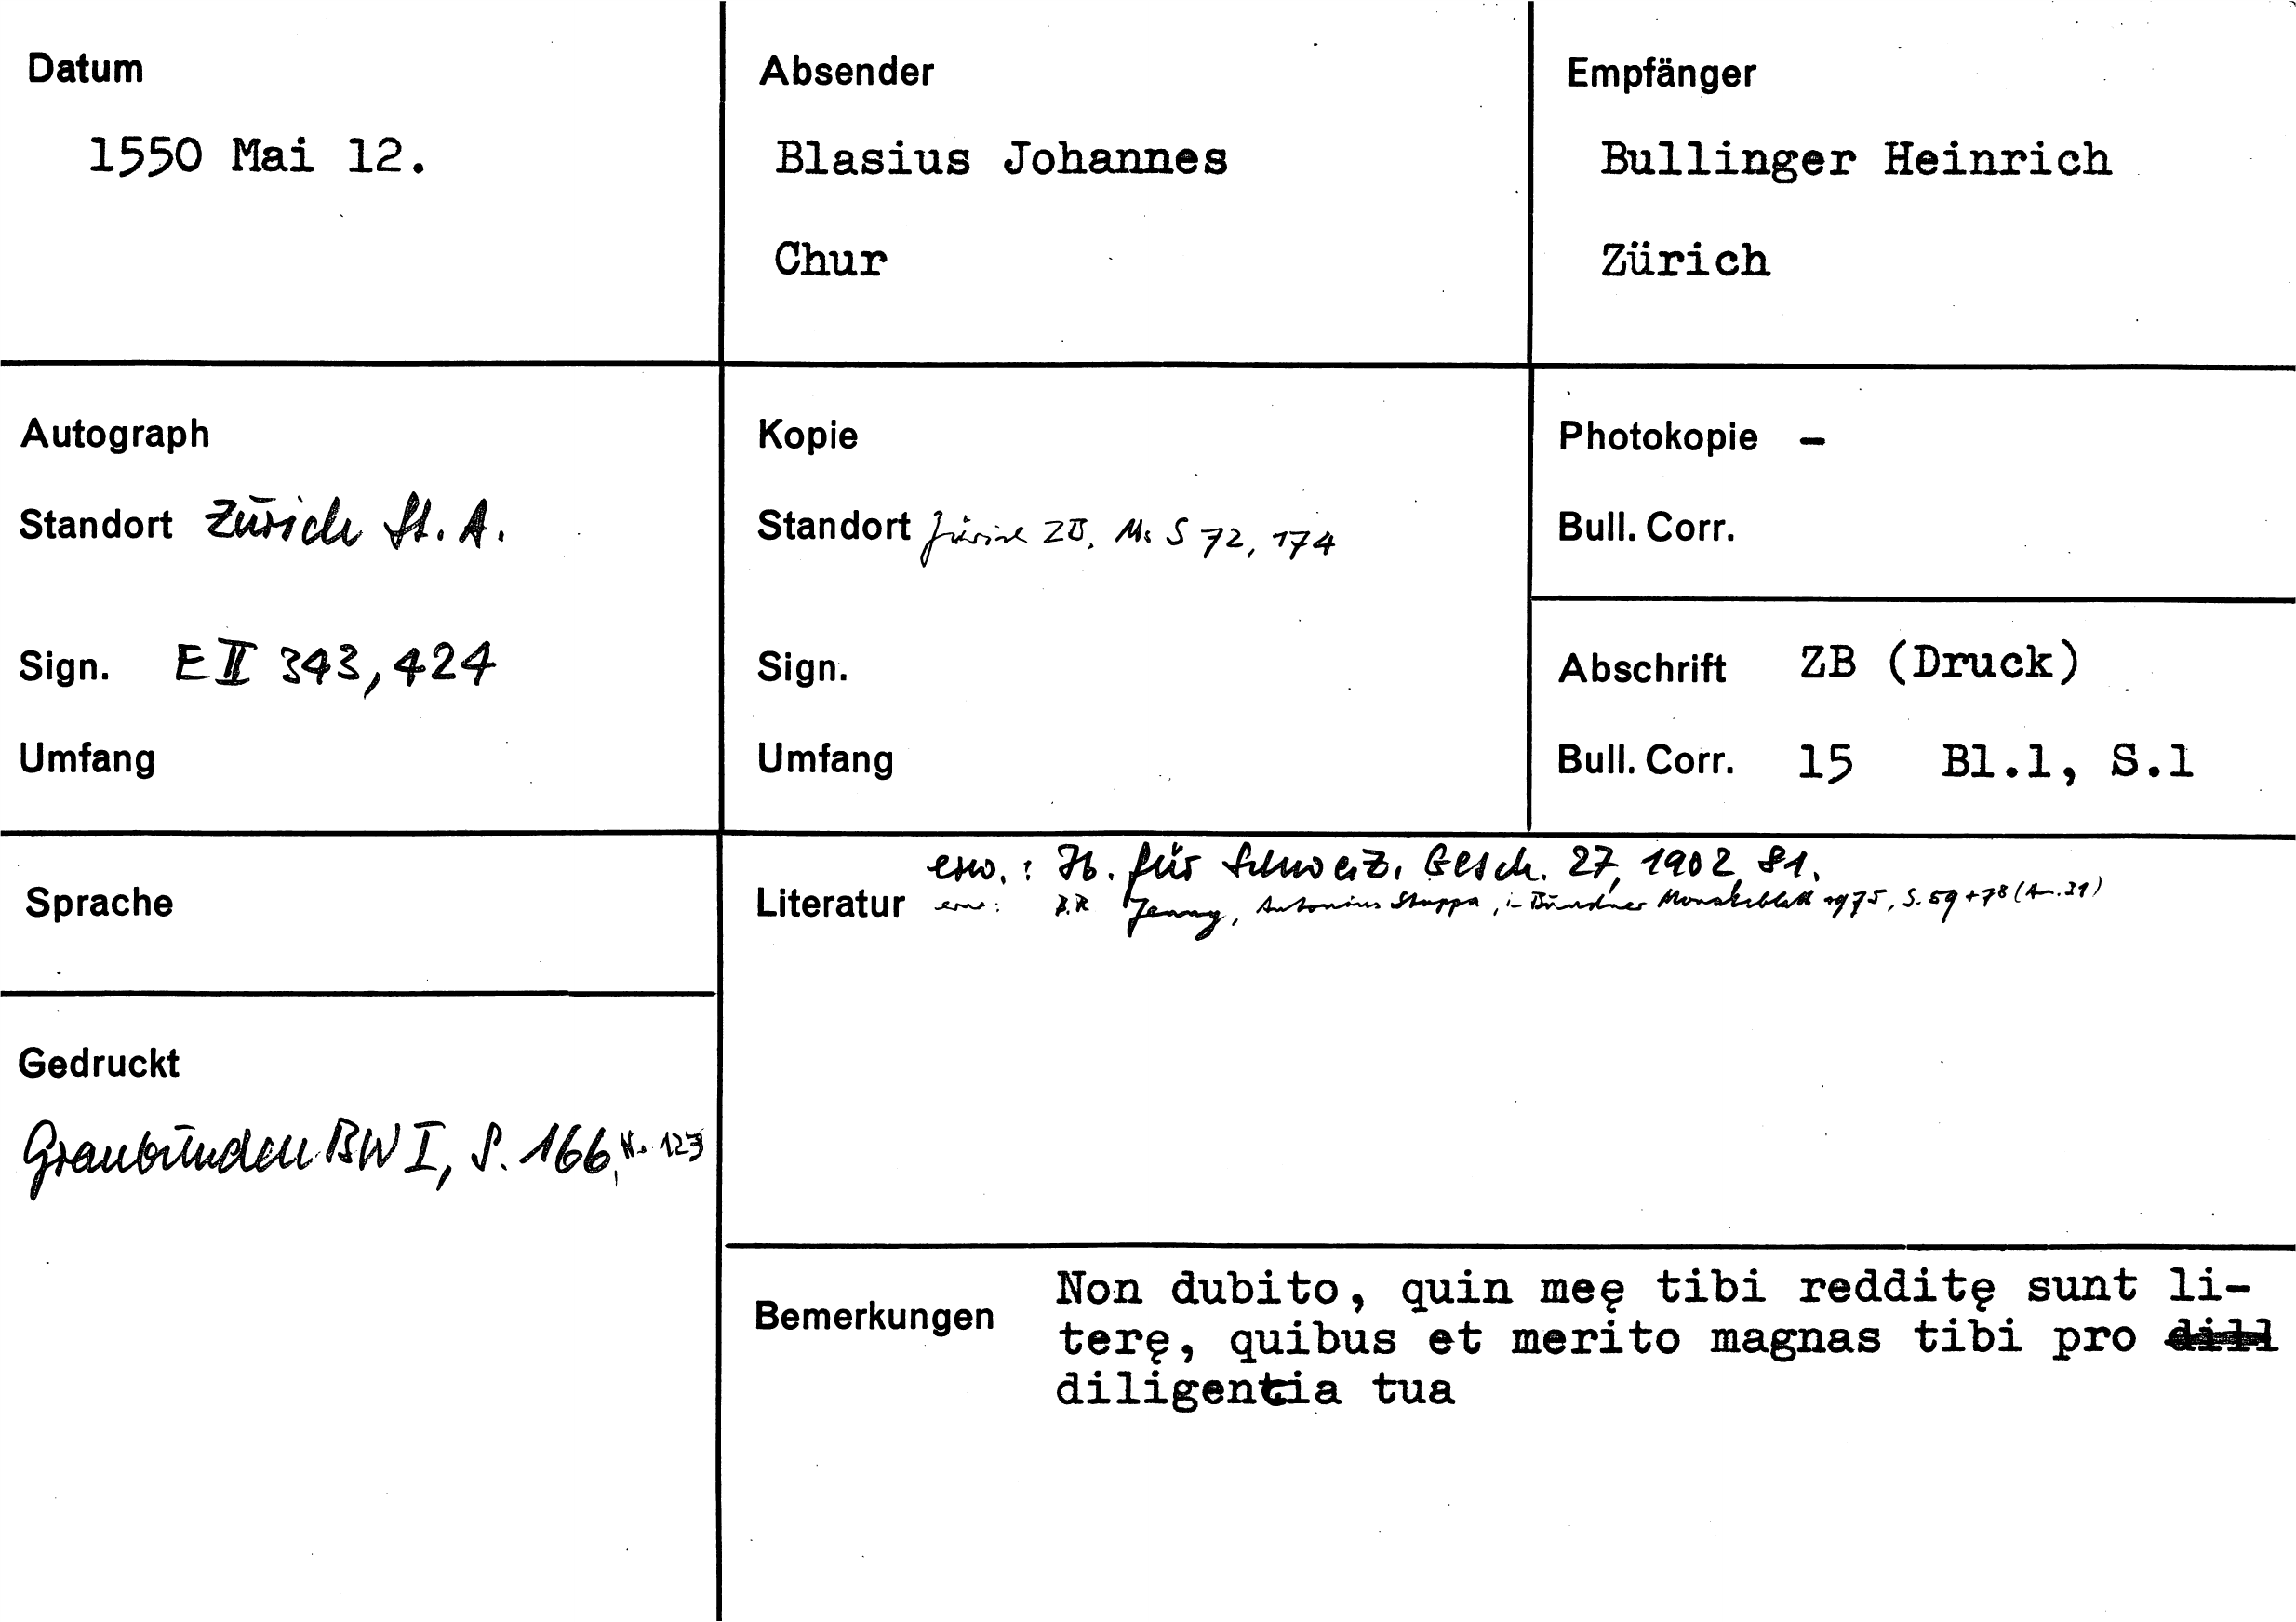 Datum
1550 Mai 12.
Absender
Blasius Johannes
Chur
Empfänger
Bullinger Heinrich
Zürich
Autograph
Standort Zürich St. A.
Sign. E II 343, 424
Umfang
Kopie
Standort Zürich ZB, Ms S 72, 174
Sign.
Umfang
Photokopie –
Bull. Corr.
Abschrift ZB (Druck)
Bull. Corr. 15 Bl.1, S.1
Sprache
Gedruckt
Graubünden BW I, S. 166, Nr. 123
Literatur
erw.: Jb. für Schweiz. Gesch. 27, 1902, 81.
erw: Jenny, Antonius Stuppa, in Bündner Monatsblatt 1975, S. 59 + 78 (An. 31)
Bemerkungen
Non dubito, quin meę tibi redditę sunt li-
terę, quibus et merito magnas tibi pro dill
diligentia tua